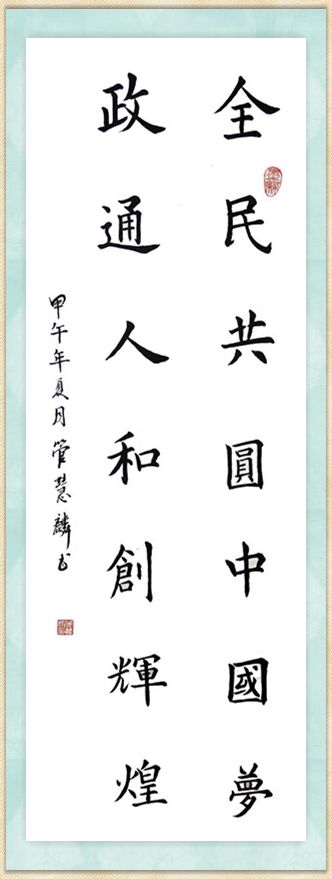 全民共圓中國夢
政通人和創輝煌
甲午年夏月管慧麟书